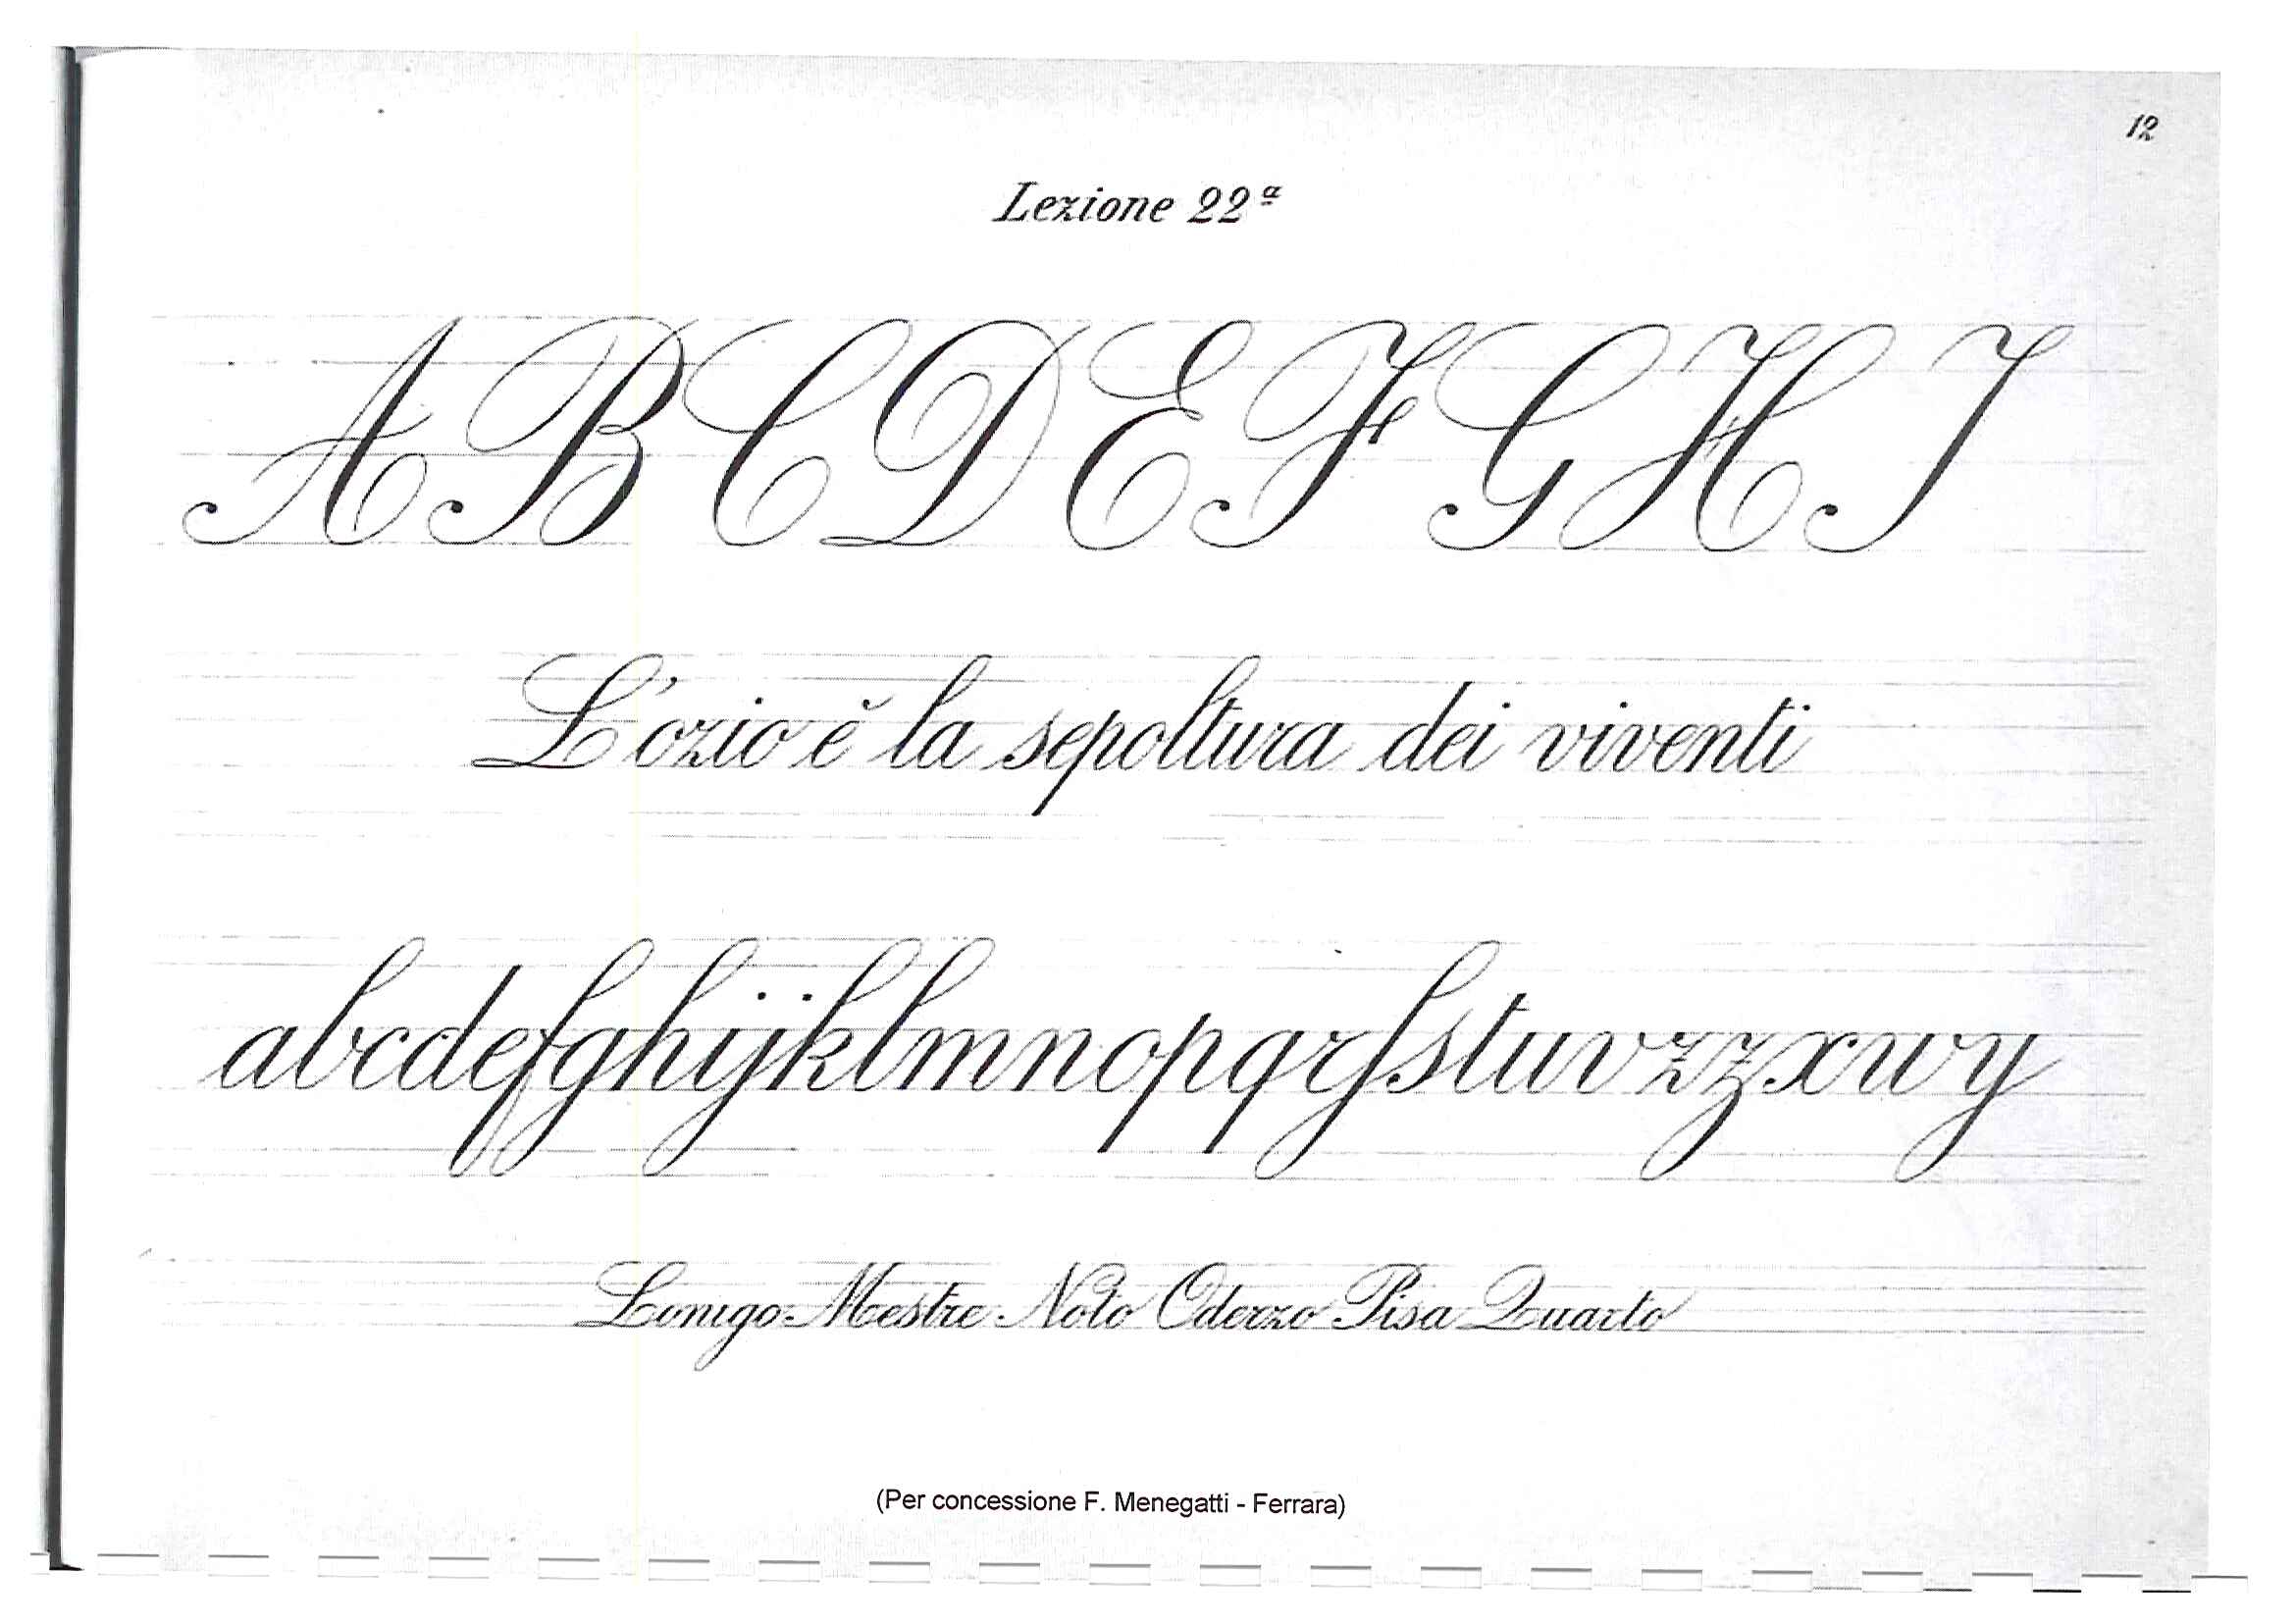 12
Lezione 22ª
A B C D E F G H I
L'ozio è la sepoltura dei viventi
abcdefghijklmnopqrſstuvzzxwy
Lonigo Mestre Noto Oderzo Pisa Quarto
(Per concessione F. Menegatti - Ferrara)